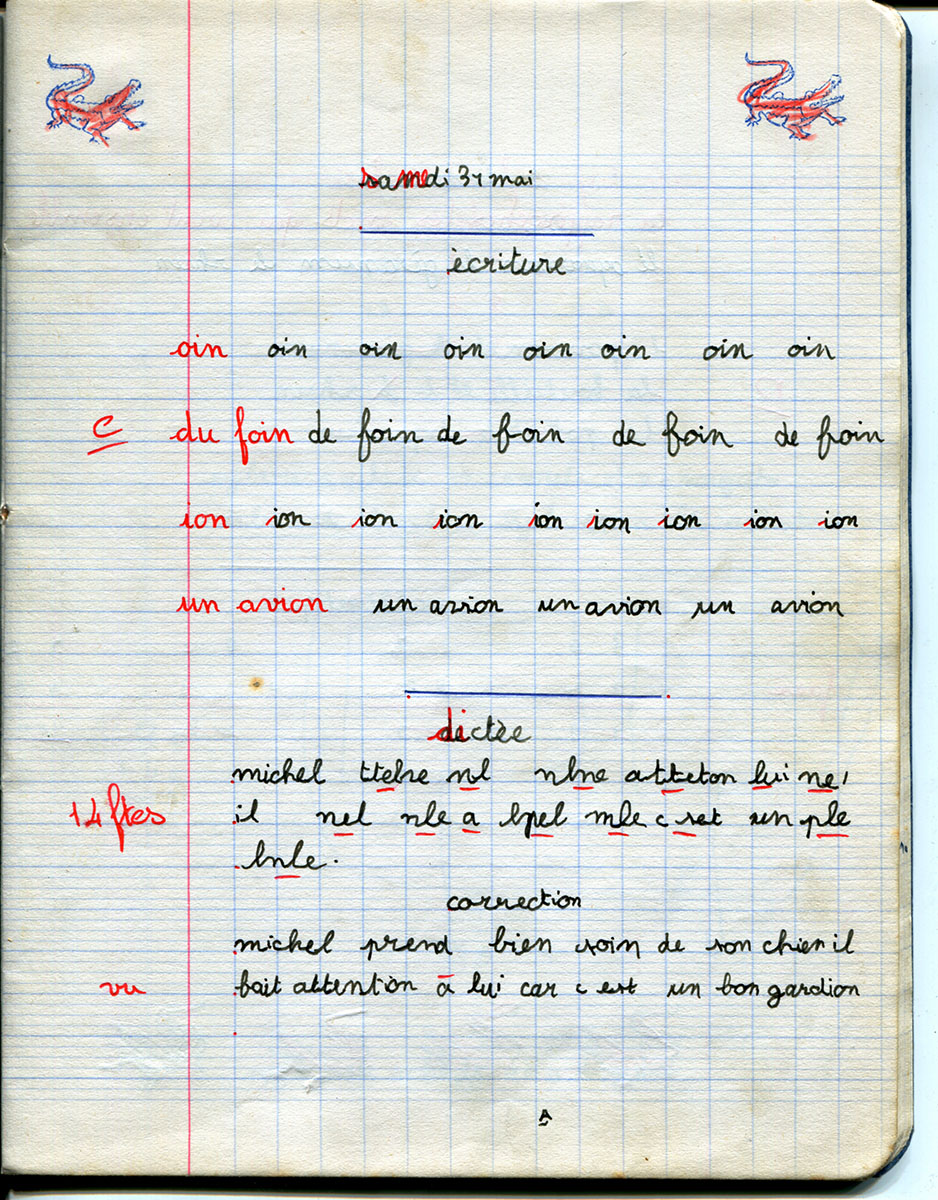 samedi 31 mai
écriture
oin oin oin oin oin oin oin oin
C du foin de foin de foin de foin de foin
ion ion ion ion ion ion ion ion ion
un avion un avion un avion un avion
dictèe
michel ttelre nl nlne atteton lui ne,
14 ftes il nel nle a bpel mle c set un ple
lnle.
correction
michel prend bien soin de son chien il
vu fait attention à lui car c est un bon gardion
A